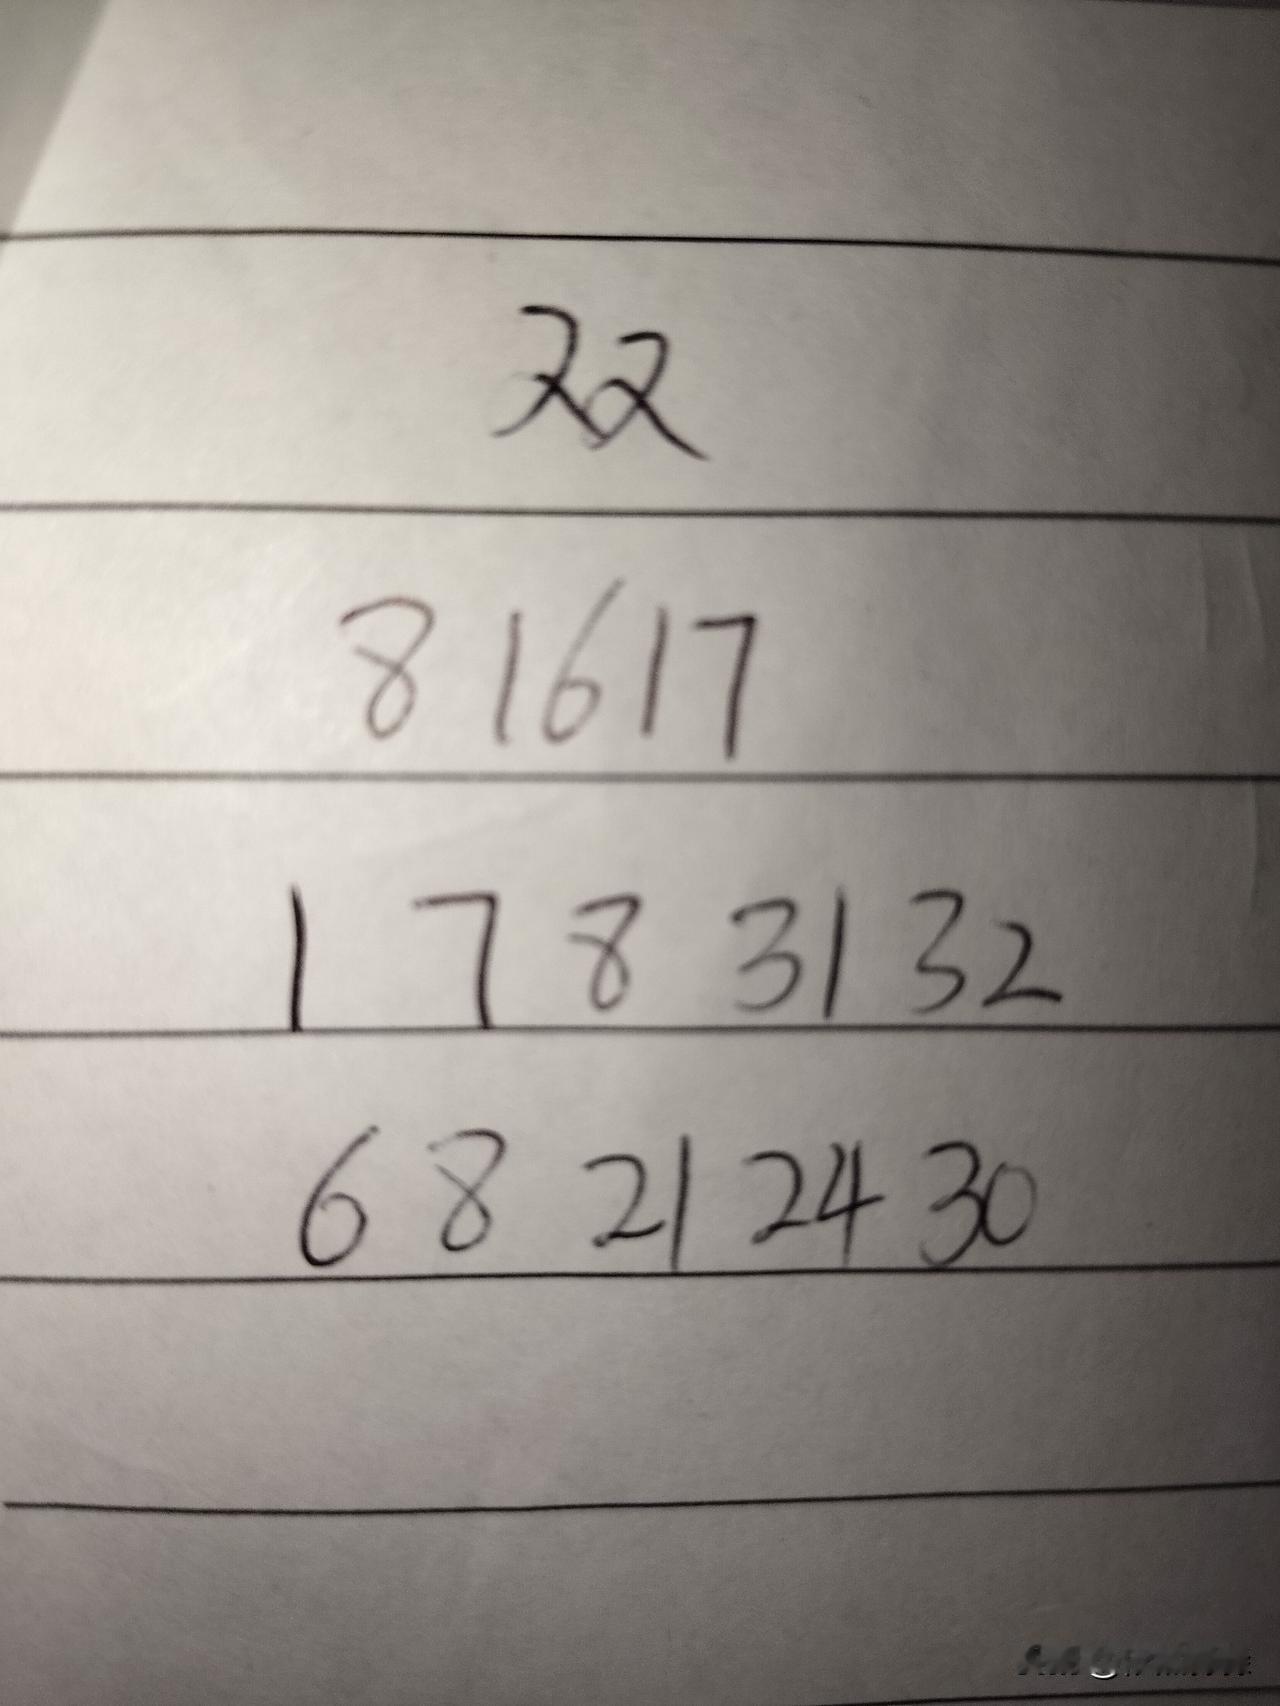 22
8 16 17
1 7 8 31 32
6 8 21 24 30